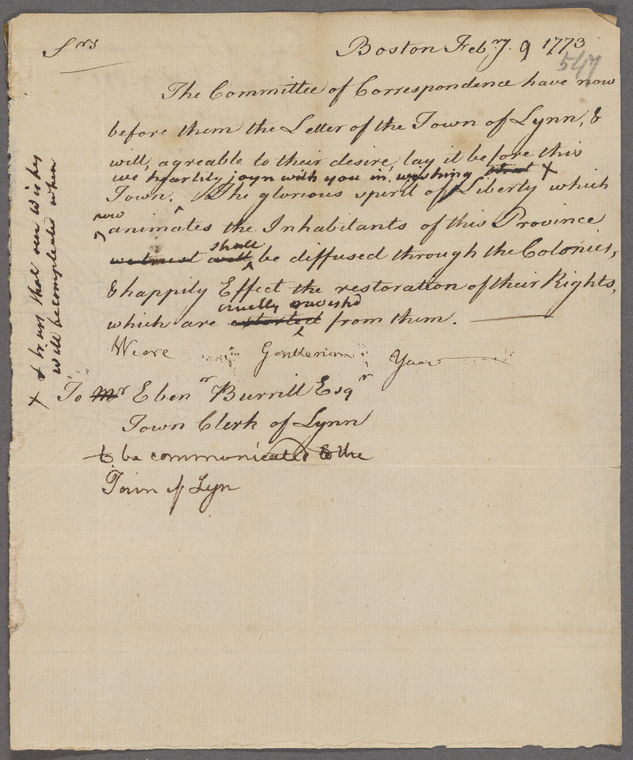 Srs Boston Feby. 9 1773
547
The Committee of Correspondence have now
before them the Letter of the Town of Lynn, &
will, agreable to their desire, lay it before this
we heartily joyn with you in, wishing that x
Town. The glorious spirit of Liberty which
now
animates the Inhabitants of this Province
shall
will be diffused through the Colonies,
& happily Effect the restoration of their Rights,
cruelly ravishd
which are extorted from them.
We are Gentlemen Your
To Mr Ebenr Burrill Esqr
Town Clerk of Lynn
to be communicated to the
Town of Lyn
x & trust that our wishes
will be compleated when